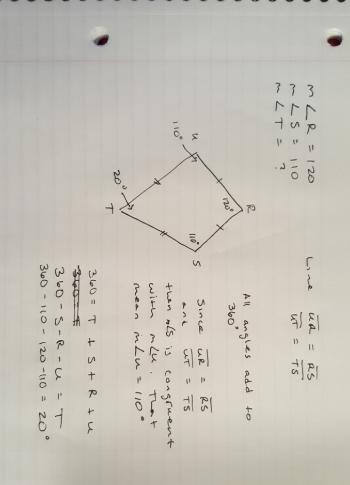 m∠R = 120
m∠S = 110
m∠T = ?
Line UR = RS
UT = TS
R
120°
U
110°
110°
S
20°
T
All angles add to
360°
Since UR = RS
and UT = TS
then m∠S is congruent
with m∠U. That
mean m∠U = 110°
360 = T + S + R + U
360 - S - R - U = T
360 - 110 - 120 - 110 = 20°